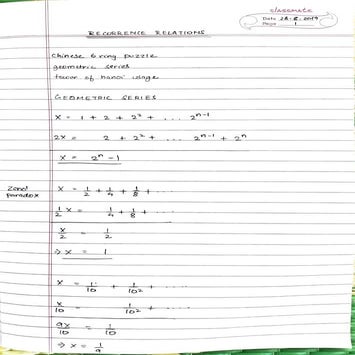 classmate
Date 28.8.2019
Page 1
RECURRENCE RELATIONS
Chinese 6 ring puzzle
geometric series
tower of hanoi usage
GEOMETRIC SERIES
x = 1 + 2 + 2² + ... 2ⁿ⁻¹
2x = 2 + 2² + ... 2ⁿ⁻¹ + 2ⁿ
x = 2ⁿ - 1
Zeno's paradox
x = 1/2 + 1/4 + 1/8 + ...
1/2 x = 1/4 + 1/8 + ...
x/2 = 1/2
⇒ x = 1
x = 1/10 + 1/10² + ...
x/10 = 1/10² + ...
9x/10 = 1/10
⇒ x = 1/9